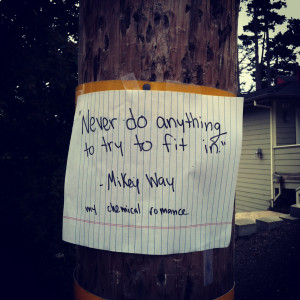 "Never do anything
to try to fit in."
- Mikey Way
my chemical romance